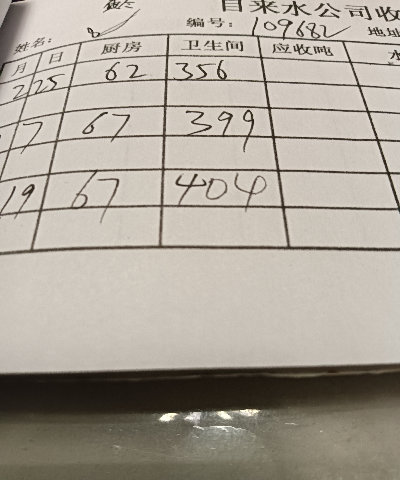 自来水公司收
编号: 109682 地址
姓名:
月 日 厨房 卫生间 应收吨 水
2 25 62 356
7 67 399
19 67 404